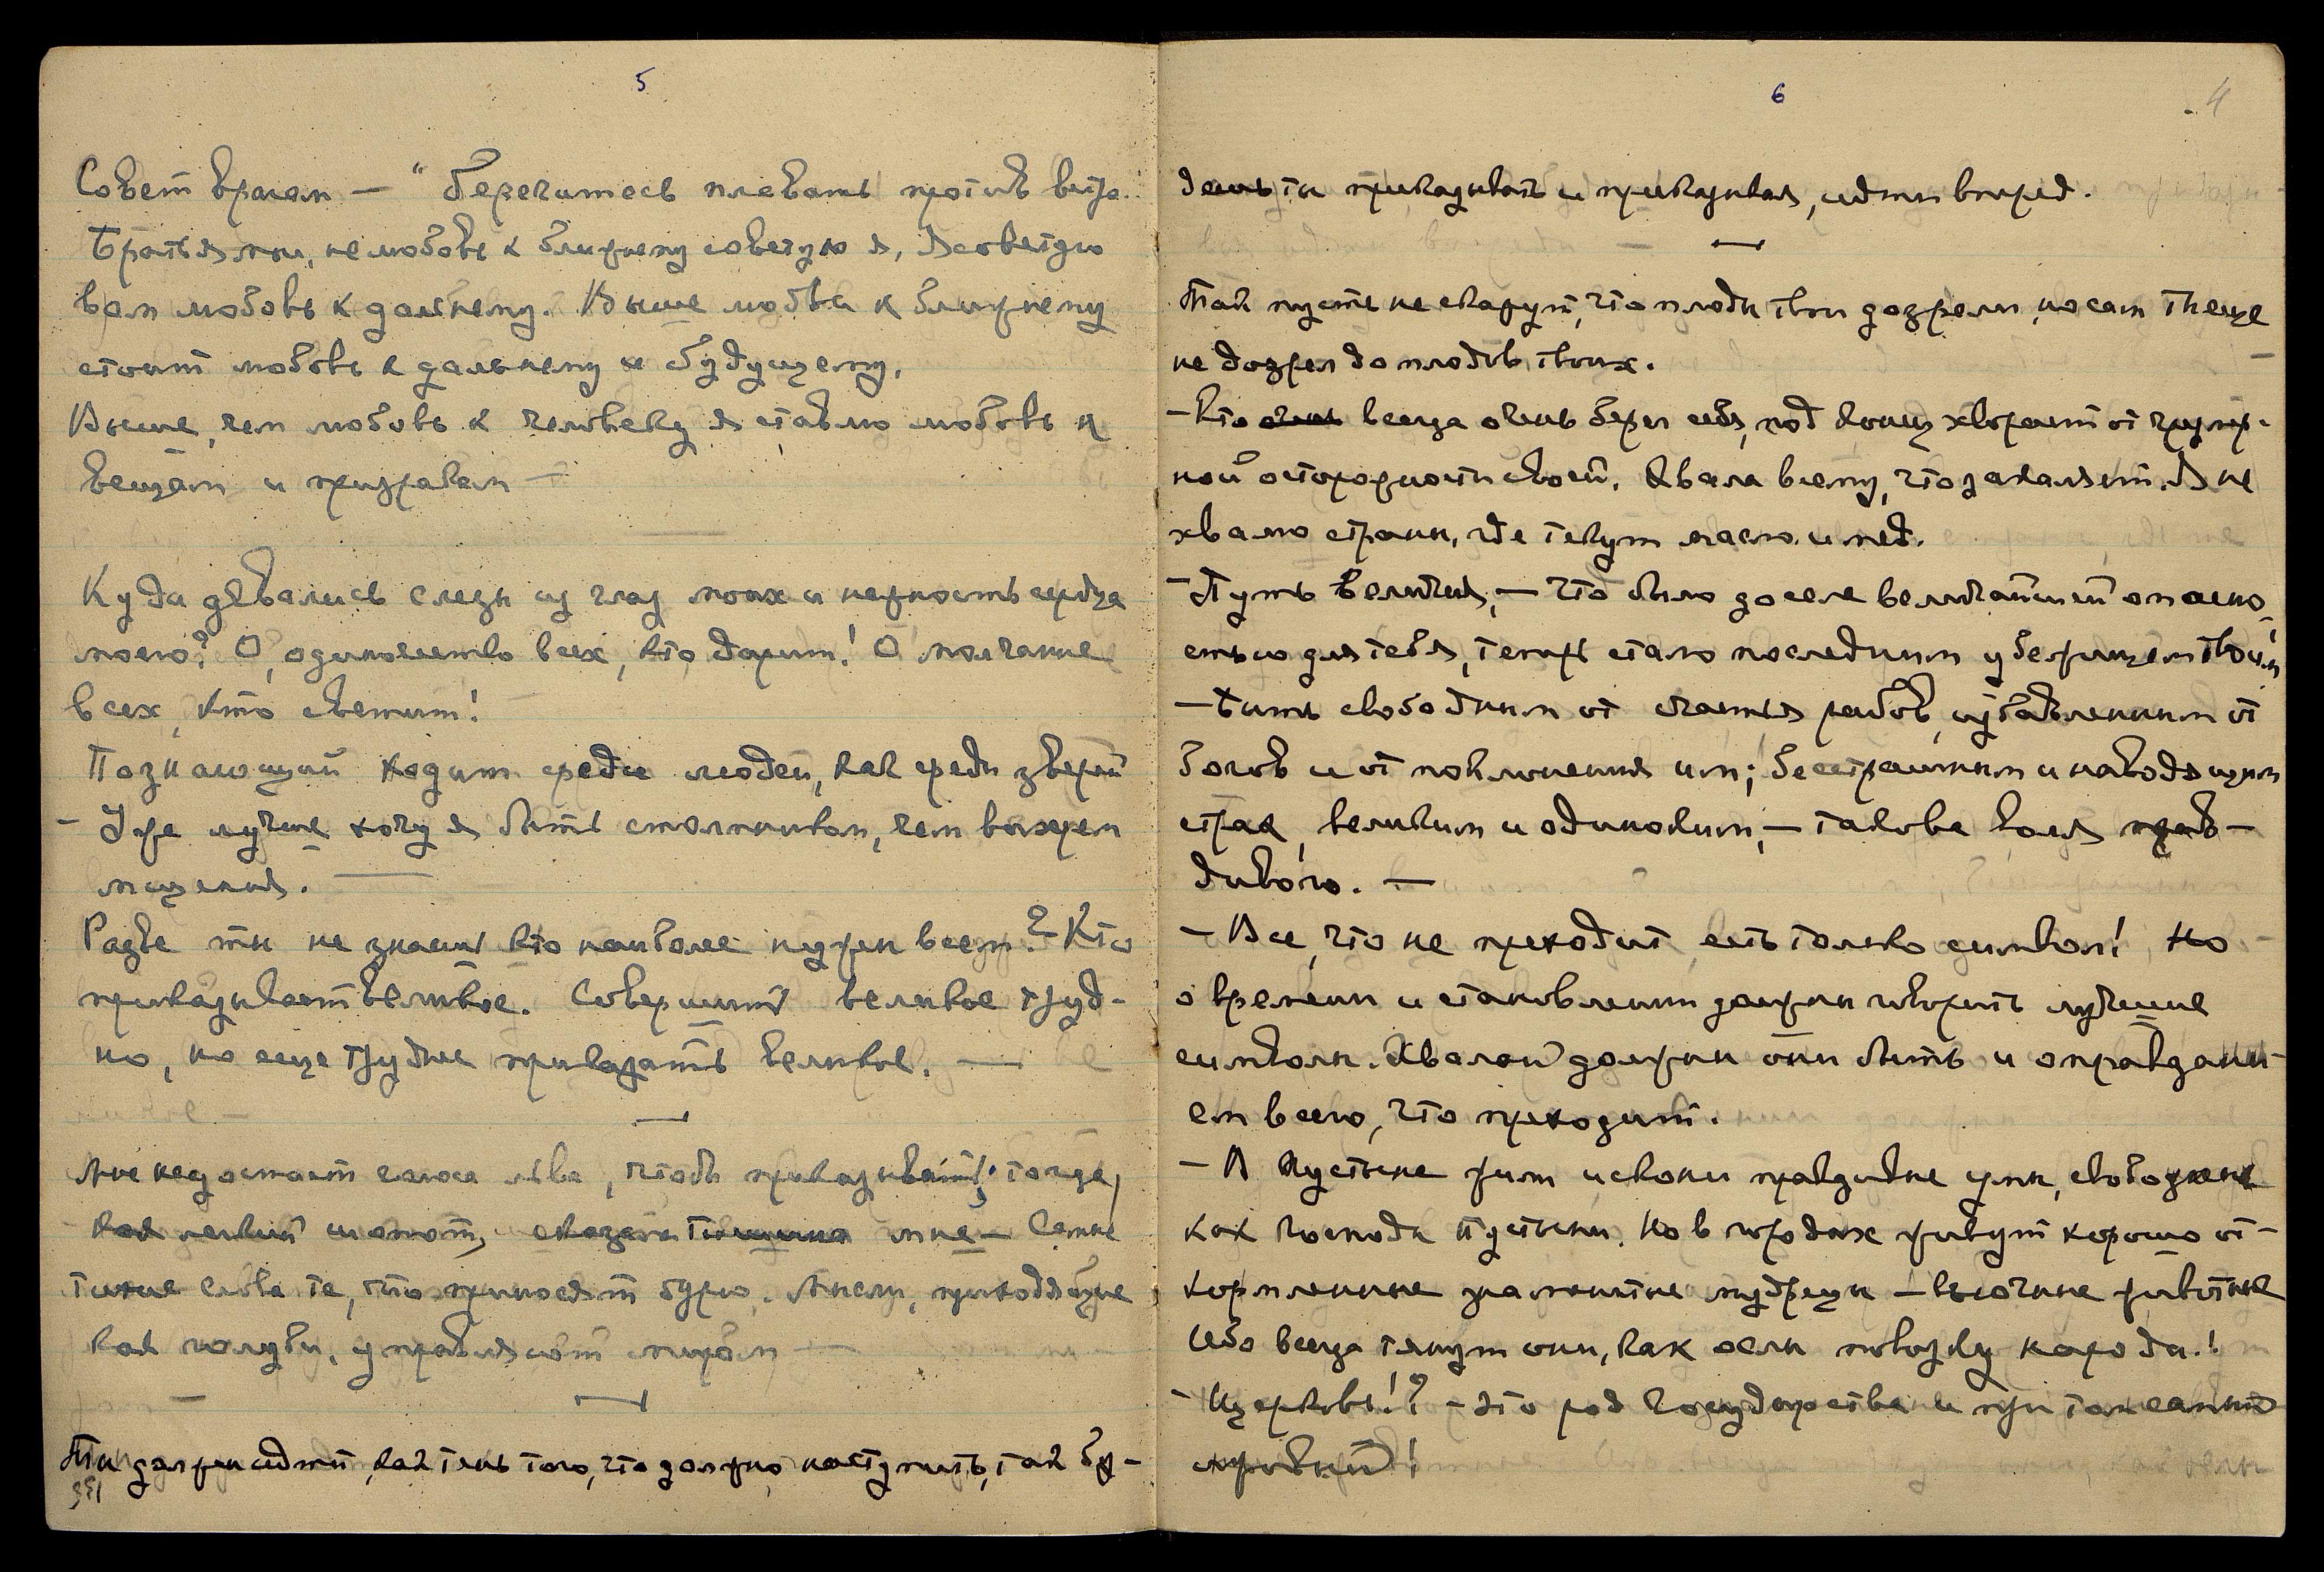 5
Совет врагам — "берегитесь плевать против ветра.
Братья мои, не любовь к ближнему советую я, я советую
вам любовь к дальнему. Выше любви к ближнему
стоит любовь к дальнему и будущему.
Выше, чем любовь к человеку я ставлю любовь к
вещам и призракам —
Куда девались слезы из глаз моих и нежность сердца
моего? О, одиночество всех, кто дарит! О молчание
всех, кто светит!
Познающий ходит среди людей, как среди зверей
- Уже лучше хочу я быть столпником, чем вихрем
мщения. —
Разве ты не знаешь кто наиболее нужен всем? — Кто
приказывает великое. Совершить великое труд-
но, но еще труднее приказать великое. —
Мне недостает голоса льва, чтобы приказывать; тогда,
как легкий шопот, сказала тишина мне — Самые
тихие слова те, что приносят бурю. Мысли, приходящие
как голуби, управляют миром —
Ты должен идти, как тень того, что должно наступить, так бу-
6
4
дешь ты приказывать и приказывая, идти вперед.
Так пусть не скажут, что плоды твои дозрели, но сам ты еще
не дозрел до плодов твоих.
- Кто очень всегда очень берег себя, под конец хворает от чрезмер-
ной осторожности своей. Хвала всему, что закаляет. Я не
хвалю страны, где текут масло и мед.
- Путь величия, — что было доселе величайшей опасно-
стью для тебя, теперь стало последним убежищем твоим!
- Быть свободным от счастья рабов, избавленным от
богов и от поклонения им; бесстрашным и наводящим
страх, великим и одиноким, — такова воля прав-
дивого. —
- Все, что не преходит, есть только символ! Но
о времени и становлении должны говорить лучшие
символы. Хвалой должны они быть и оправдани-
ем всего, что преходит.
- В пустыне жили искони правдивые умы, свободные
как господа пустыни. Но в городах живут хорошо от-
кормленные знаменитые мудрецы — вьючные животные
Ибо всегда тянут они, как ослы повозку народа!
- Церковь!? — это род государства и при том самый
лживый!